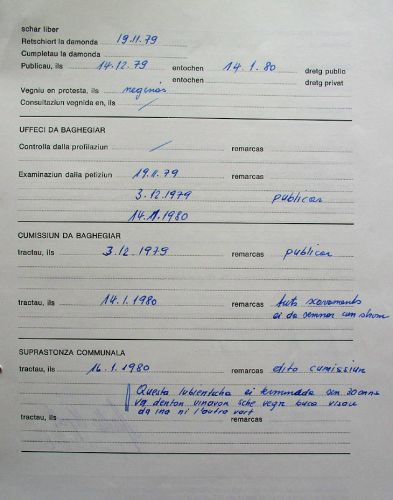 schar liber
Retschiert la damonda 19.11.79
Cumpletau la damonda
Publicau, ils 14.12.79 entochen 14.1.80 dretg public
entochen dretg privat
Vegniu en protesta, ils neginas
Consultaziun vegnida en, ils /
UFFECI DA BAGHEGIAR
Controlla dalla profilaziun / remarcas
Examinaziun dalla petiziun 19.11.79 remarcas
3.12.1979 publicar
14.1.1980
CUMISSIUN DA BAGHEGIAR
tractau, ils 3.12.1979 remarcas publicar
tractau, ils 14.1.1980 remarcas
ei da
SUPRASTONZA COMMUNALA
tractau, ils 16.1.1980 remarcas dito cumissiun
Questa lubientscha ei
sche vegn buca
da ina ni l'autra vart
tractau, ils remarcas